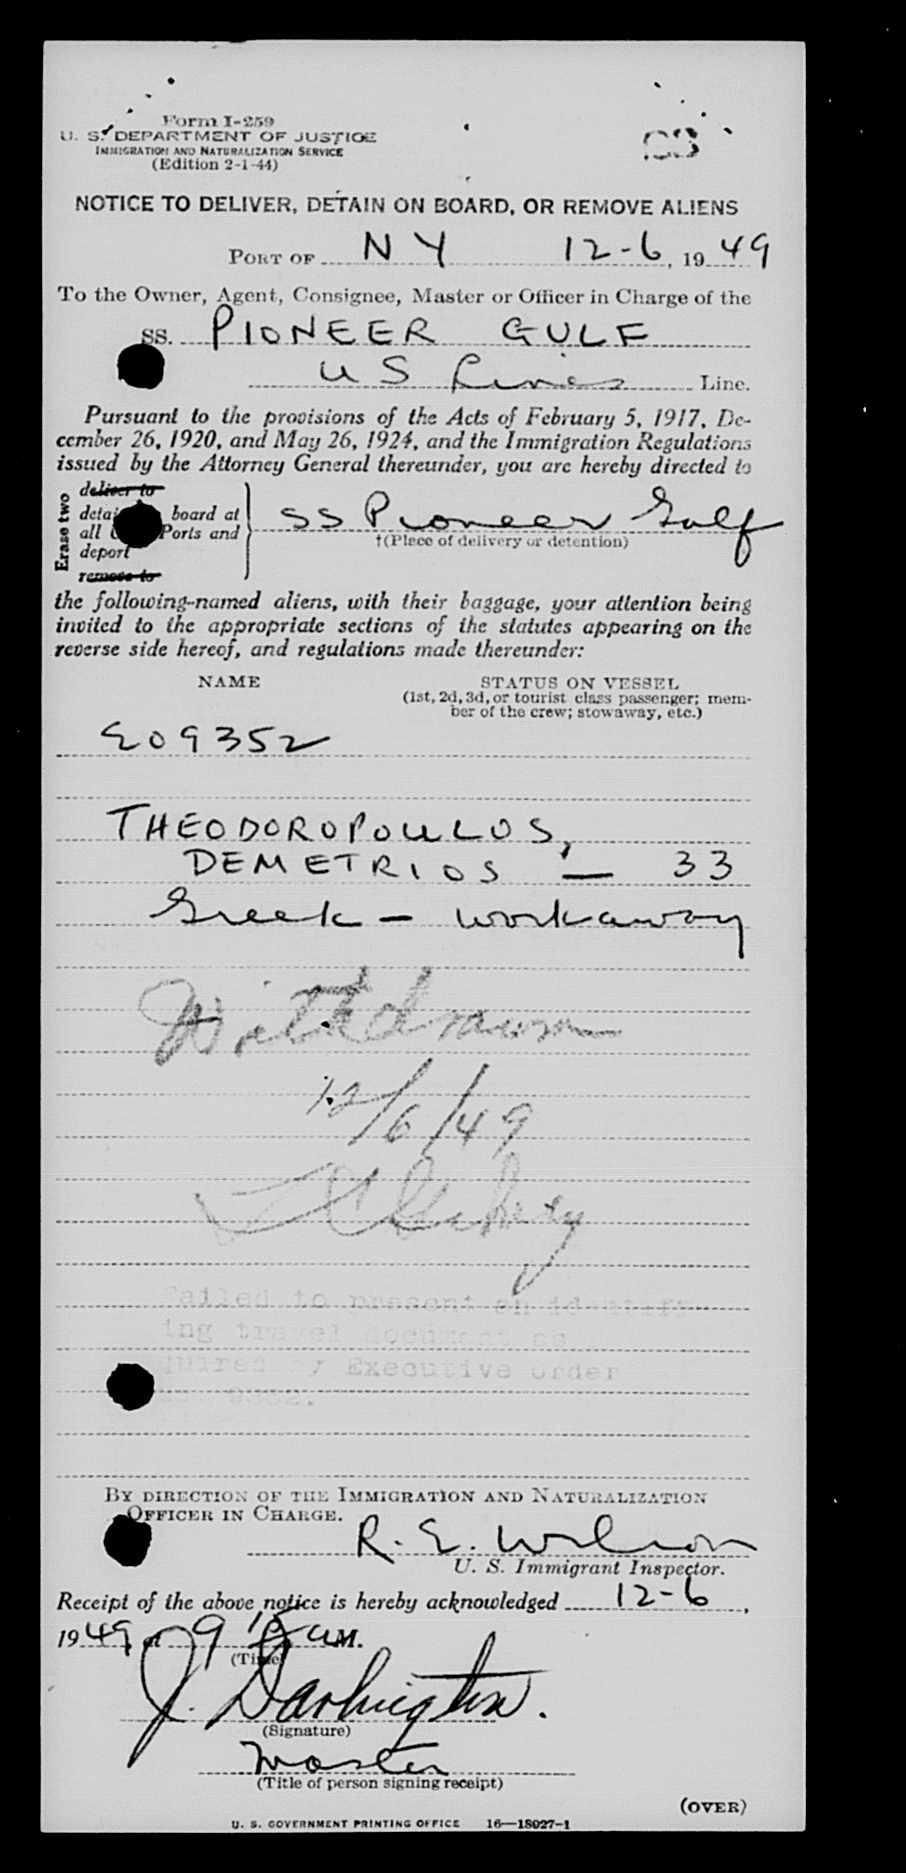 Form I-259
U. S. DEPARTMENT OF JUSTICE
IMMIGRATION AND NATURALIZATION SERVICE
(Edition 2-1-44)
NOTICE TO DELIVER, DETAIN ON BOARD, OR REMOVE ALIENS
PORT OF NY 12-6, 1949
To the Owner, Agent, Consignee, Master or Officer in Charge of the
SS. PIONEER GULF
US Lines Line.
Pursuant to the provisions of the Acts of February 5, 1917, De-
cember 26, 1920, and May 26, 1924, and the Immigration Regulations
issued by the Attorney General thereunder, you are hereby directed to
Erase two
deliver to
board at
all Ports and
deport
remove to
SS Pioneer Gulf
†(Place of delivery or detention)
the following-named aliens, with their baggage, your attention being
invited to the appropriate sections of the statutes appearing on the
reverse side hereof, and regulations made thereunder:
NAME STATUS ON VESSEL
(1st, 2d, 3d, or tourist class passenger; mem-
ber of the crew; stowaway, etc.)
E09352
THEODOROPOULOS,
DEMETRIOS — 33
Greek — workaway
Withdrawn
12/6/49
Failed to present an identify-
ing travel document as
by Executive order
BY DIRECTION OF THE IMMIGRATION AND NATURALIZATION
OFFICER IN CHARGE.
R. E. Wilson
U. S. Immigrant Inspector.
Receipt of the above notice is hereby acknowledged 12-6,
1949 at 9 15 a M.
(Time)
J. Darlington.
(Signature)
Master
(Title of person signing receipt)
(OVER)
U. S. GOVERNMENT PRINTING OFFICE 16—18027-1